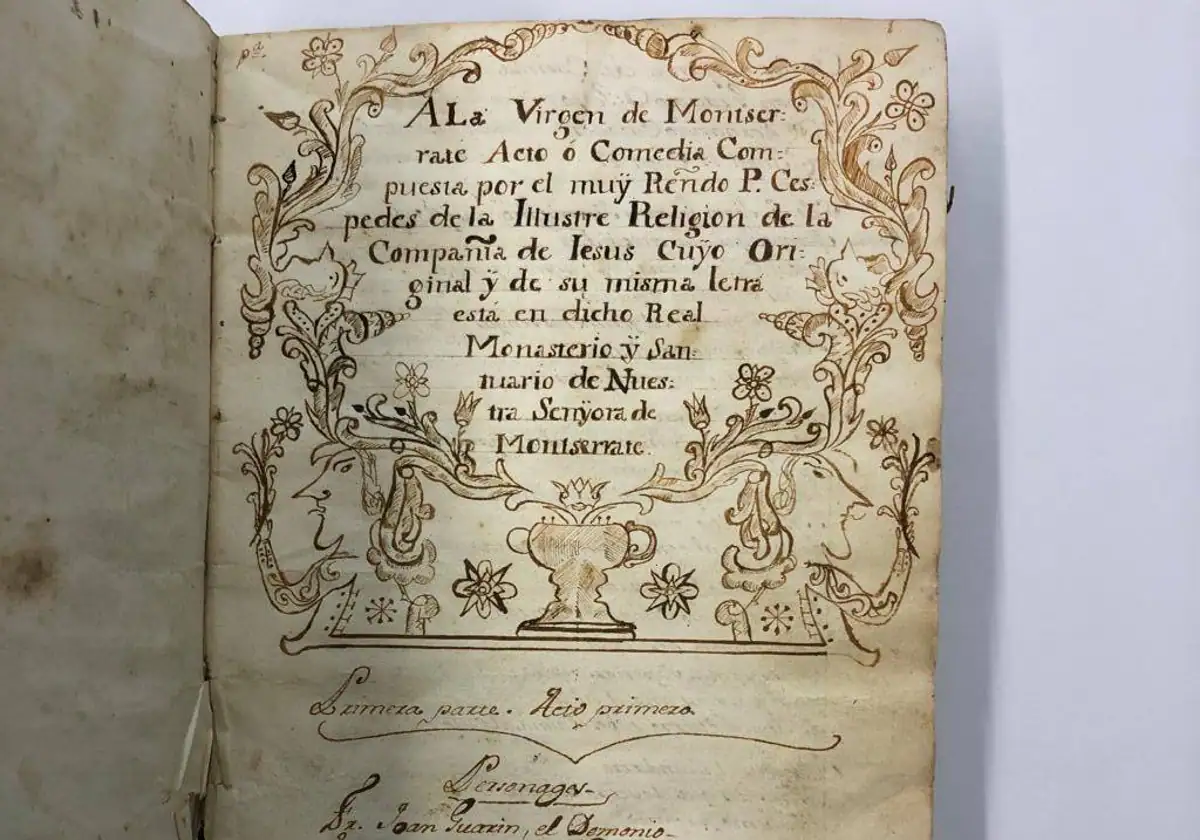 pª.
A La Virgen de Montser:
rate Acto ó Comedia Com:
puesta por el muÿ Reñdo P. Ces:
pedes de la Illustre Religion de la
Compañia de Iesus Cuÿo Ori:
ginal ÿ de su misma letra
está en dicho Real
Monasterio ÿ San:
tuario de Nues:
tra Senÿora de
Montserrate.
Primera parte. Acto primero.
Personages.
Fr. Joan Guarin, el Demonio